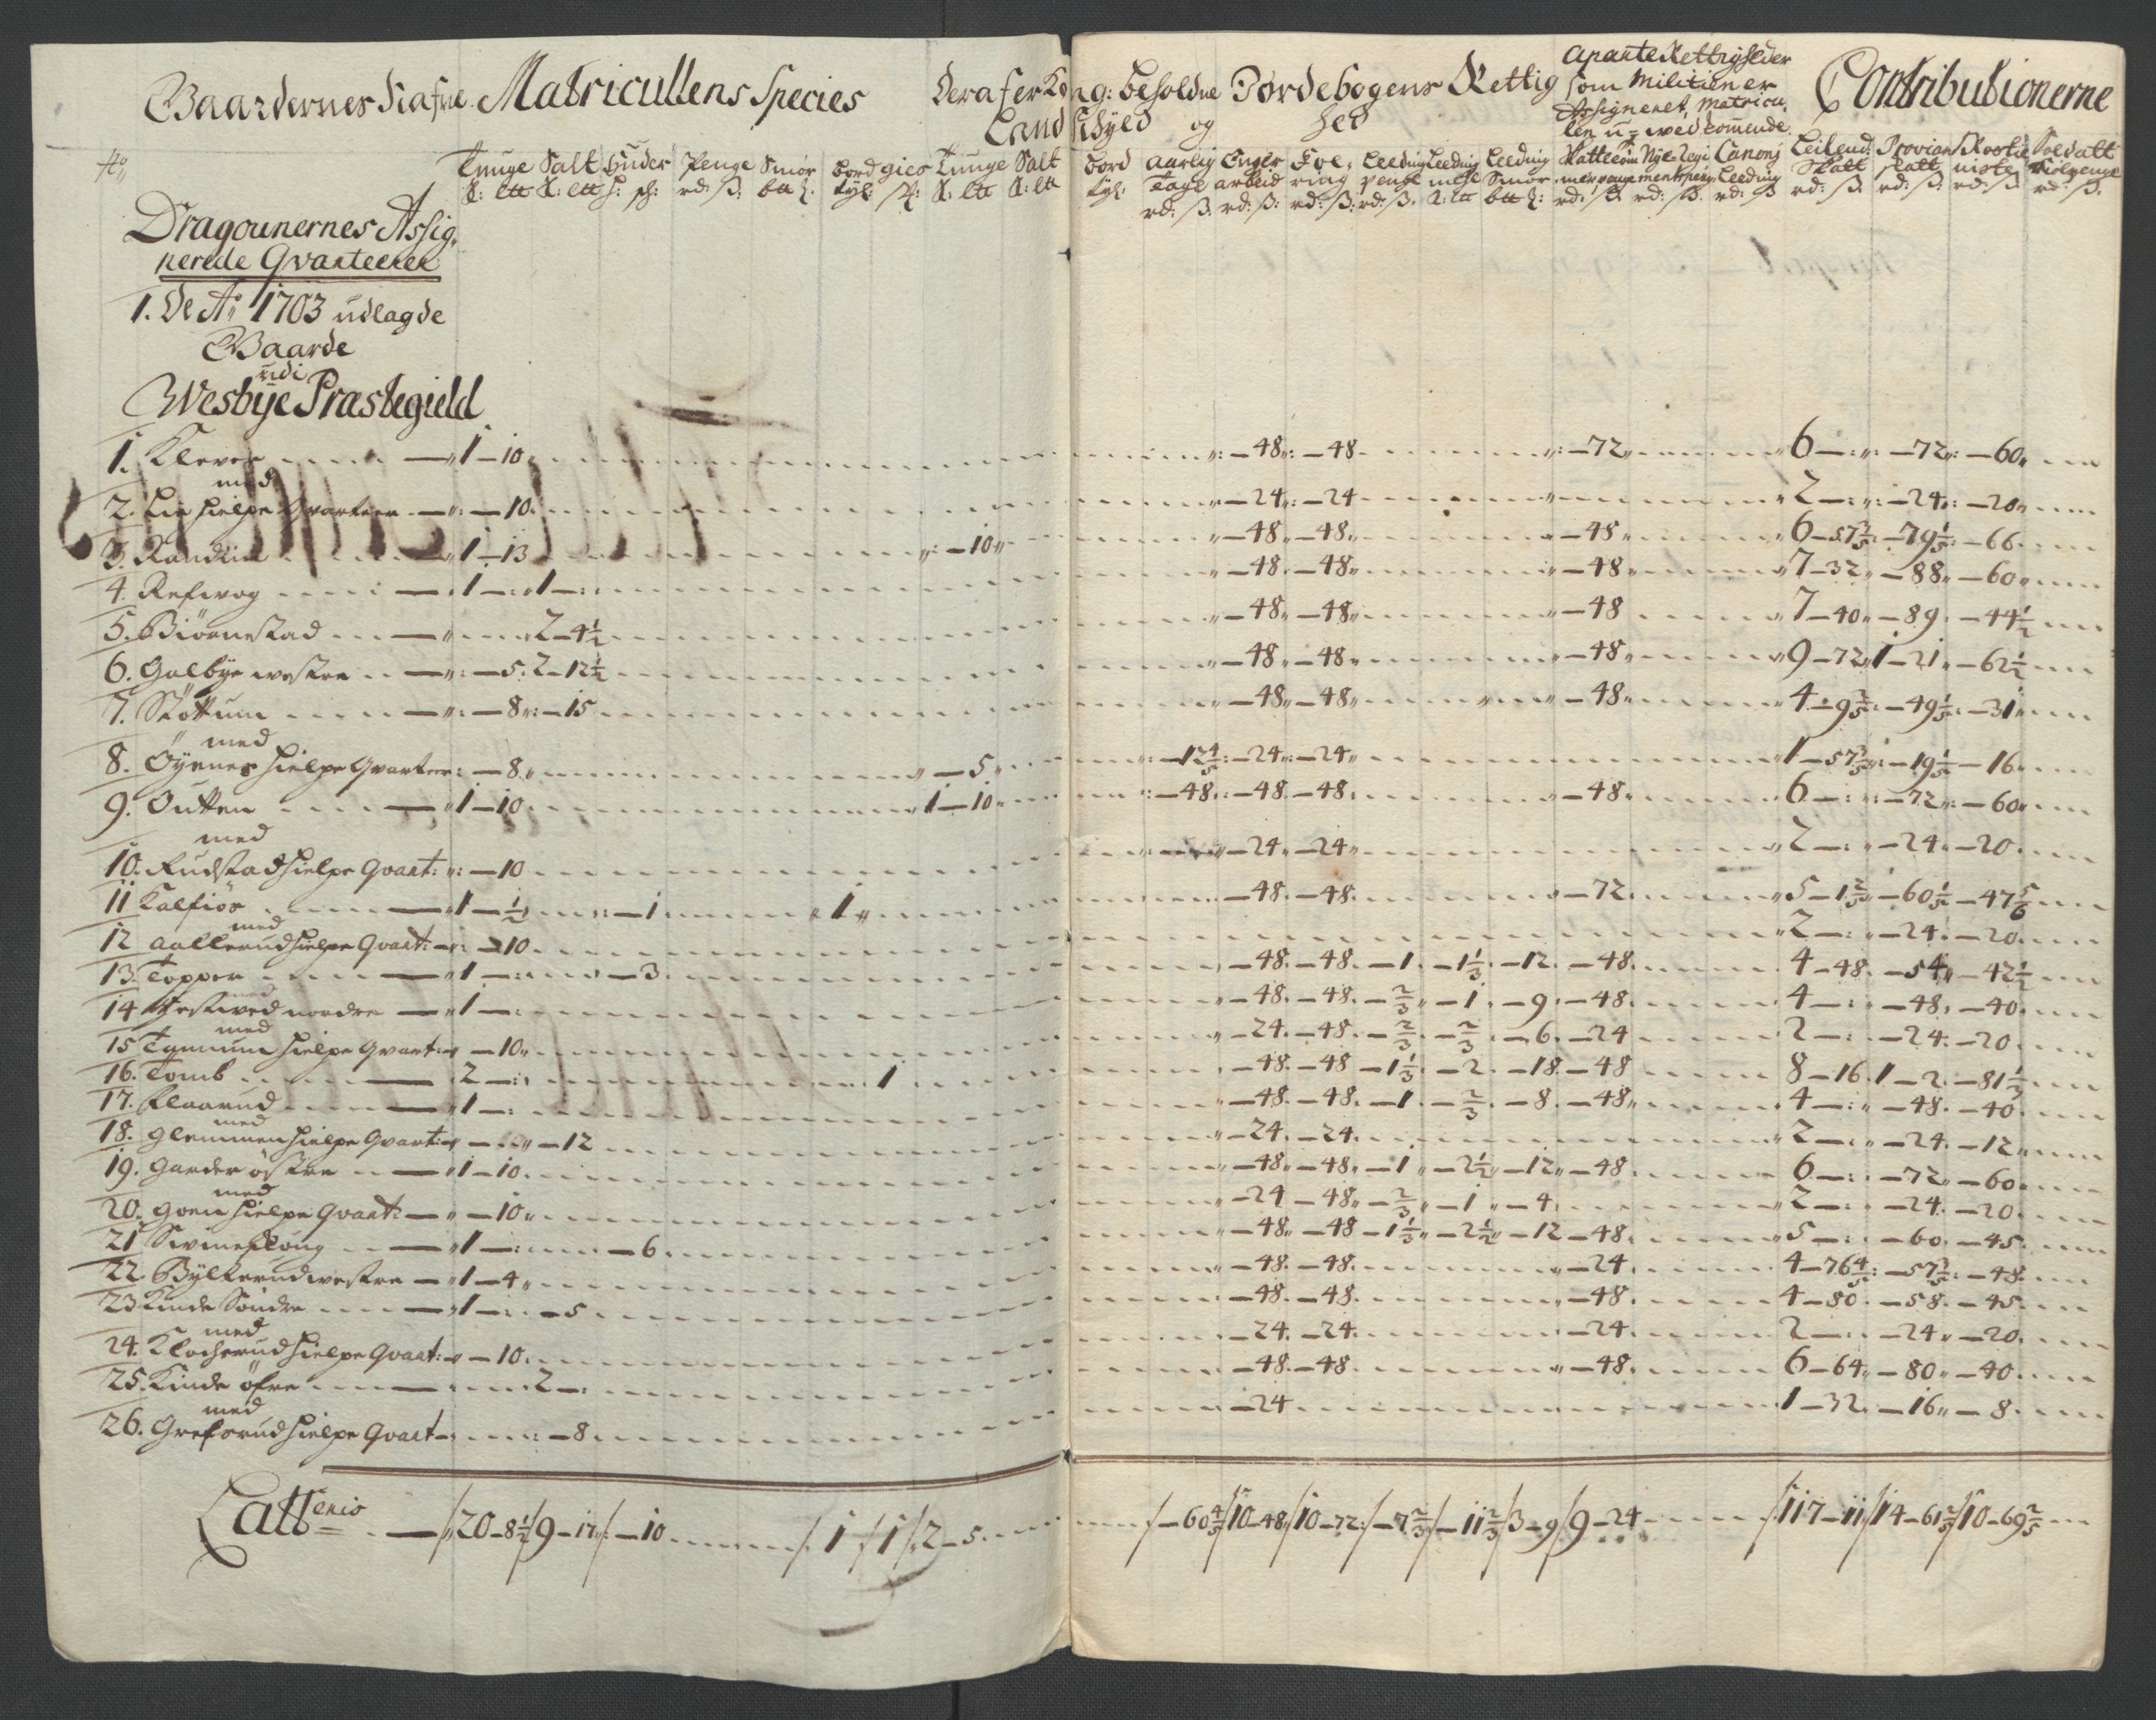 Gaardernes Nafne. Matricullens Species Deraf er Kong: beholdne Jordebogens Rettig Aparte Rettigheder Contributionerne
Land Skyld og hed som Militien er
Assigneret, Matricu,
len u-wedkommende
No Tunge Salt Huder Penge Smør bord gies Tunge Salt bord Aarlig Enger Foe, Leeding Leeding Leeding Canonj Leilend: Provian Rostie Soldatt
Tage arbeid ring penge mehl Smør Leeding Skatt Skatt niste
Dragounernes Assig,
nerede Qvarteerer
1. De Ao 1703 udlagde
Gaarde
udi
Wesbye Præstegield
1. Klever — 1 — 10 — 48 — 48 — 72 6 — : — 72 — 60
med
2. Lie hielpe Qvarteer — : — 10 — 24 — 24 2 — : — 24 — 20
3. Randem — 1 — 13 : — 10 — 48 — 48 — 48 6 — 57 3/5 — 79 1/5 — 66
4. Refwog — 1 — : 1 — : — 48 — 48 — 48 7 — 32 — 88 — 60
5. Biørnestad — 2 — 4 1/2 — 48 — 48 — 48 7 — 40 — 89 — 44 1/2
6. Galbye westre — : — 5 : 2 — 12 1/2 — 48 — 48 — 48 9 — 72 1 — 21 — 62 1/2
7. Støttum — : — 8 : — 15 — 48 — 48 — 48 4 — 9 3/5 — 49 1/5 — 31
med
8. Øyenes hielpe Qvarteer : — 8 — 5 — 12 4/5 — 24 — 24 1 — 57 3/5 — 19 1/5 — 16
9. Outten — 1 — 10 1 — 10 — 48 — 48 — 48 — 48 6 — : — 72 — 60
med
10. Rudstad hielpe Qvart: : — 10 — 24 — 24 2 — : — 24 — 20
11 Kalfiøs — 1 — 1/2 : — 1 1 — 48 — 48 — 72 5 — 1 3/5 — 60 1/5 — 47 5/6
med
12 Aallerud hielpe Qvart: : — 10 2 — : — 24 — 20
13. Topper — 1 — : — 3 — 48 — 48 — 1 — 1 1/3 — 12 — 48 4 — 48 — 54 — 42 1/2
14 Hestwed nordre — 1 — : — 48 — 48 — 2/3 — 1 — 9 — 48 4 — : — 48 — 40
med
15 Tommum hielpe Qvart: — 10 — 24 — 48 — 2/3 — 2/3 — 6 — 24 2 — : — 24 — 20
16. Tomb — 2 — : 1 — 48 — 48 — 1 1/3 — 2 — 18 — 48 8 — 16 1 — 2 — 81 1/2
17. Flaarud — 1 — : — 48 — 48 — 1 — 2/3 — 8 — 48 4 — : — 48 — 40
med
18. Glemmen hielpe Qvart: — — 12 — 24 — 24 2 — : — 24 — 12
19. Garder østre — 1 — 10 — 48 — 48 — 1 — 2 1/2 — 12 — 48 6 — : — 72 — 60
med
20. Goen hielpe Qvart: — — 10 — 24 — 48 — 2/3 — 1 — 4 2 — : — 24 — 20
21 Swineskoug — 1 — : — 6 — 48 — 48 — 1 1/3 — 2 1/2 — 12 — 48 5 — : — 60 — 45
22. Bylterud westre — 1 — 4 — 48 — 48 — 24 4 — 76 4/5 — 57 3/5 — 48
23. Kinde Søndre — 1 — : — 5 — 48 — 48 — 48 4 — 80 — 58 — 45
med
24. Klocherud hielpe Qvart: — 10 — 24 — 24 — 24 2 — : — 24 — 20
25. Kinde øfre — 2 — : — 48 — 48 — 48 6 — 64 — 80 — 40
med
26. Grefsrud hielpe Qvart : — 8 — 24 1 — 32 — 16 — 8
Latt enis — 20 — 8 1/2 9 — 17 : — 10 1 1 2 — 5 — 60 4/5 10 — 48 10 — 72 — 7 2/3 — 11 2/3 3 — 9 9 — 24 117 — 11 14 — 61 2/5 10 — 69 2/5